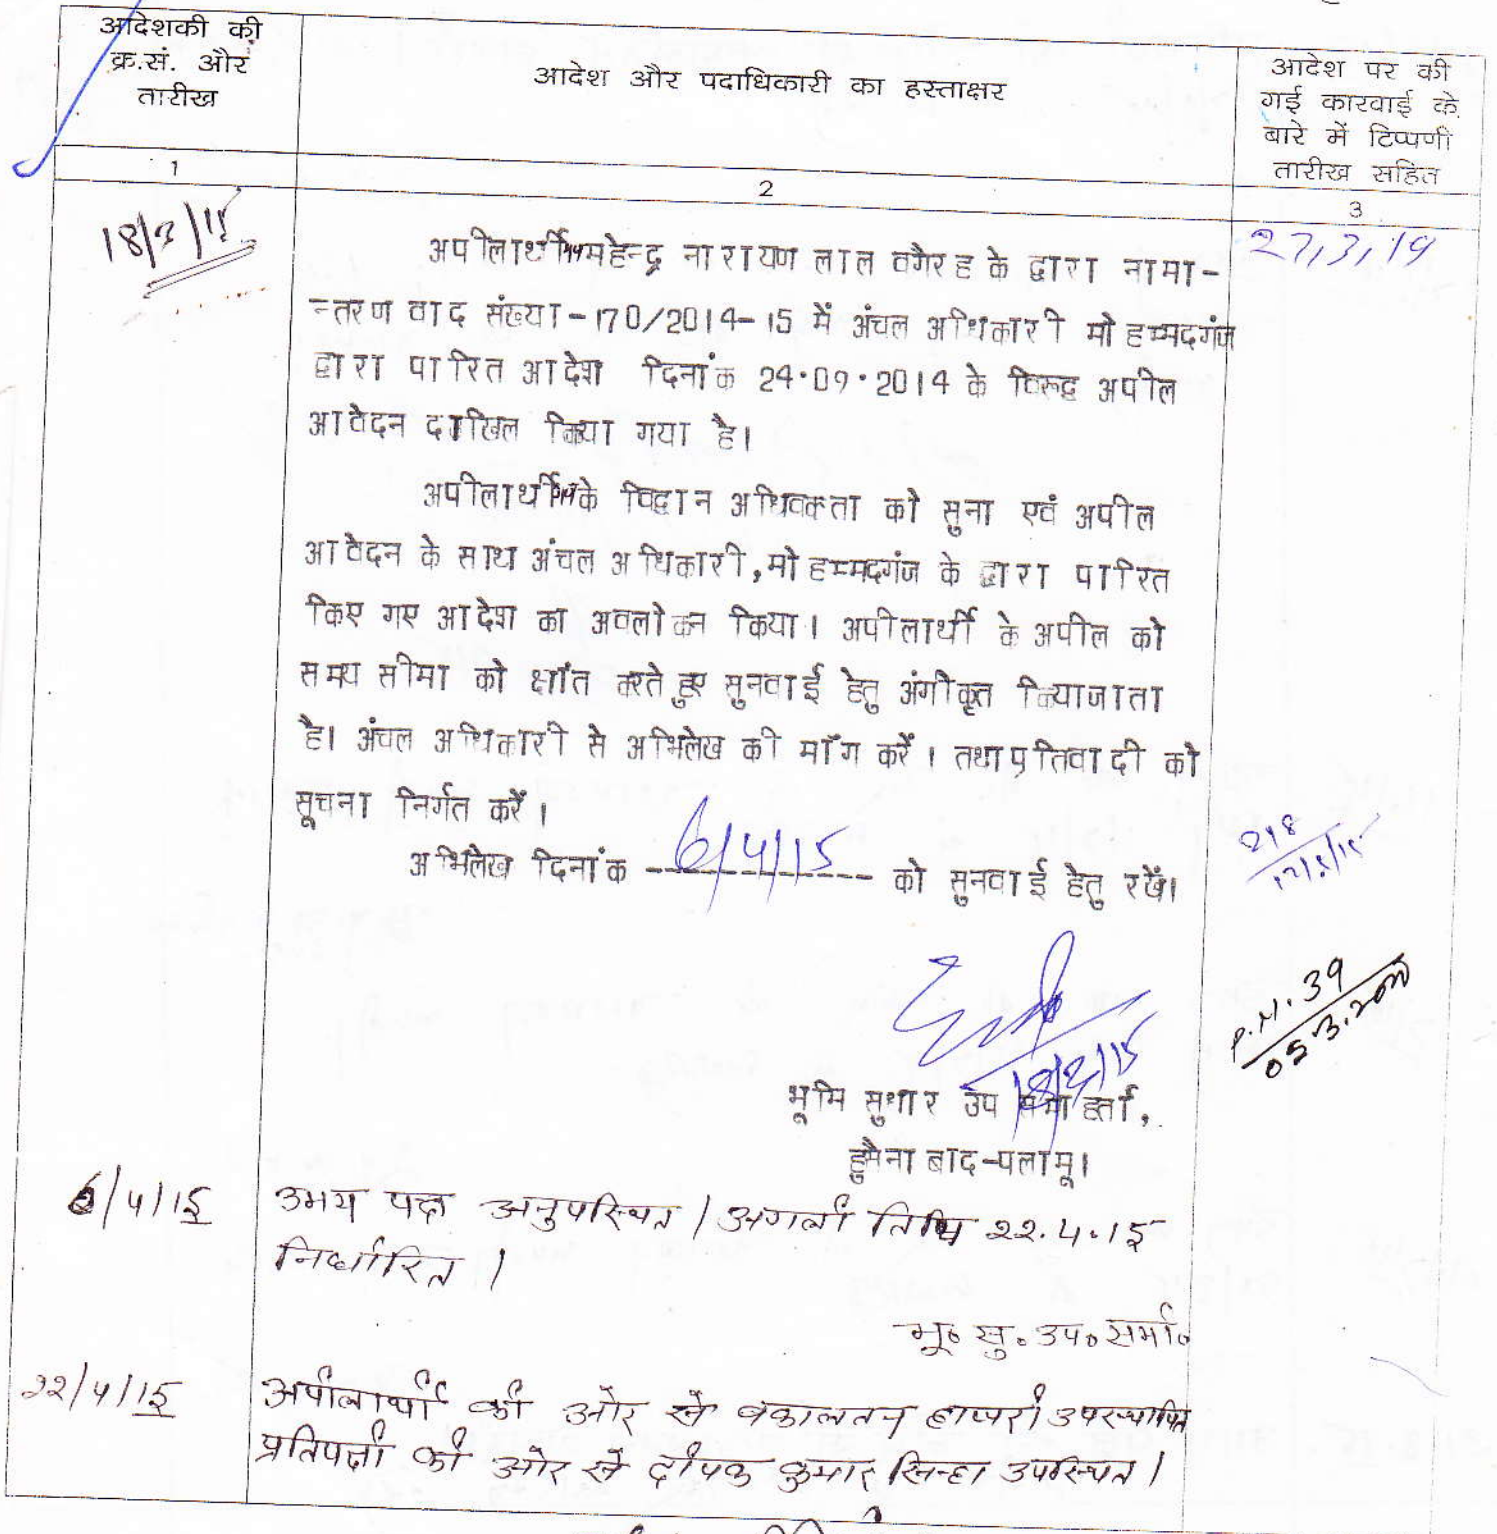 आदेशकी की
क्र.सं. और
तारीख
आदेश और पदाधिकारी का हस्ताक्षर
आदेश पर की
गई कारवाई के
बारे में टिप्पणी
तारीख सहित
1
2
3
18/3/15
27/3/19
अपीलार्थी महेन्द्र नारायण लाल वगैरह के द्वारा नामा-
न्तरण वाद संख्या-170/2014-15 में अंचल अधिकारी मोहम्मदगंज
द्वारा पारित आदेश दिनांक 24.09.2014 के विरूद्ध अपील
आवेदन दाखिल किया गया है।
अपीलार्थी के विद्वान अधिवक्ता को सुना एवं अपील
आवेदन के साथ अंचल अधिकारी, मोहम्मदगंज के द्वारा पारित
किए गए आदेश का अवलोकन किया। अपीलार्थी के अपील को
समय सीमा को क्षांत करते हुए सुनवाई हेतु अंगीकृत कियाजाता
है। अंचल अधिकारी से अभिलेख की माँग करें। तथा प्रतिवादी को
सूचना निर्गत करें।
अभिलेख दिनांक 6/4/15 को सुनवाई हेतु रखें।
218
P.M. 39
भूमि सुधार उप समाहर्ता,
हुसैनाबाद-पलामू।
6/4/15 उभय पक्ष अनुपस्थित। अगली तिथि 22.4.15
निर्धारित।
भू० सु० उप० समा०
22/4/15 अपीलार्थी की ओर से वकालतन हाजरी उपस्थापित
प्रतिपक्षी की ओर से दीपक कुमार सिन्हा उपस्थित।